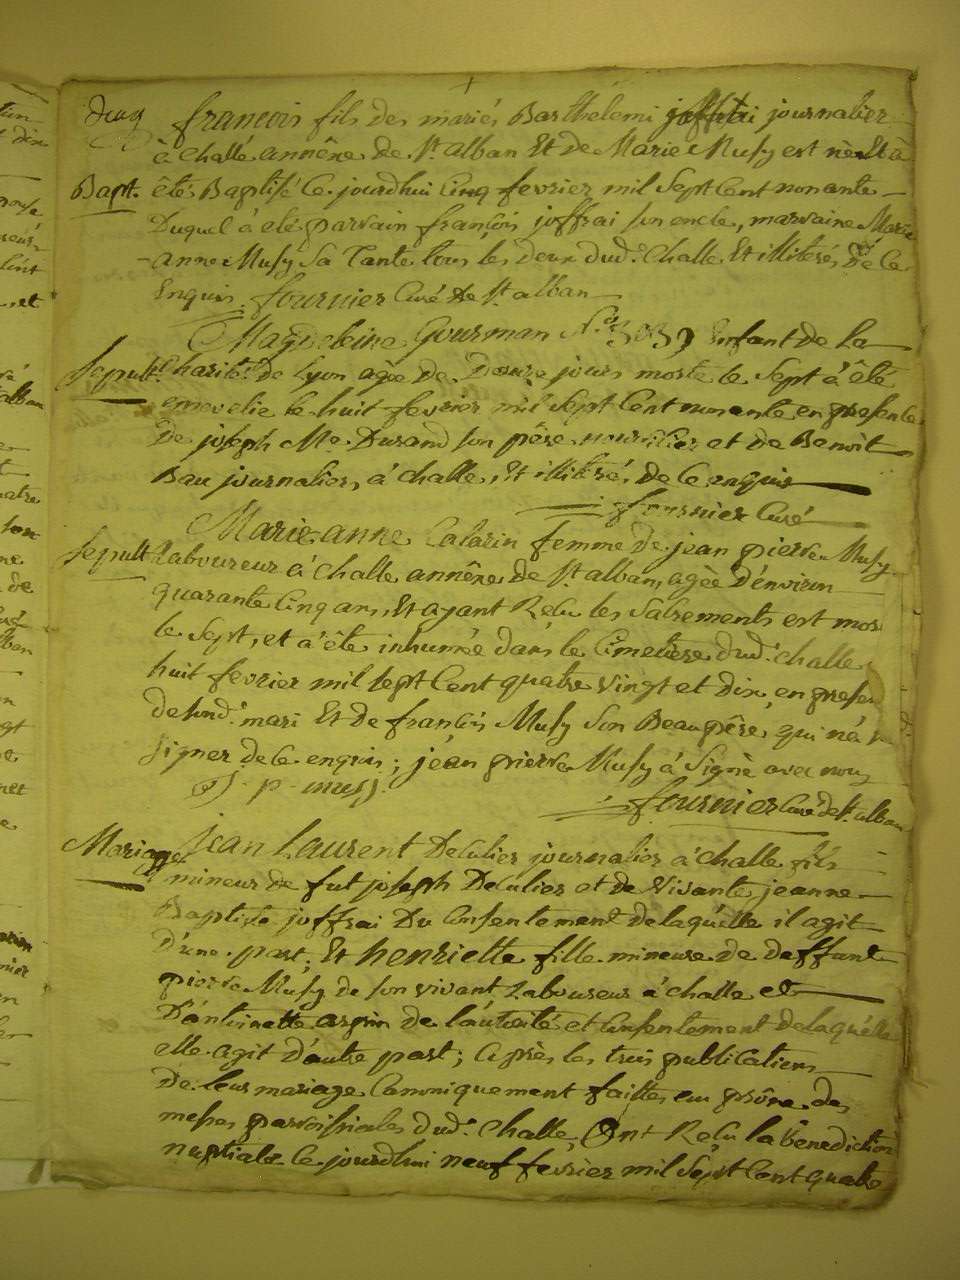 Bapt.
françois fils des mariés Barthélemi joffrai journalier
à challe annêxe de St alban Et de Marie Musy est nèe Et à
êtés Baptisé le jourdhui cinq fevrier mil Sept Cent nonante
Duquel à eté parrain françois joffrai son oncle, marraine Marie
anne Musy Sa Tante tous les deux dud. challe Et illiterés de ce
Enquis. fournier Curé De St alban
Sepult.
Magdeleine Gourman No 3039 Enfant de la
Charité de lyon agèe de Douze jours morte le Sept à êté
ensevelie le huit fevrier mil Sept Cent nonente en presence
De joseph Me. Durand son pêre nourricier et de Benoit
Bau journalier, à challe, Et illitèré, de ce enquis
fournier Curé
Sepult
Marie-anne Calarin femme de jean pierre Musy
Laboureur à challe annêxe de St alban, agèe d'énviron
quarante Cinq ans, Et ayant Relu les Sacrements est mor
le Sept, et à êté inhumée dans le Cimetiere dud. challe
huit fevrier mil sept Cent quatre vingt et dix, en presen
de sond. mari Et de françois Musy Son Beaupêre, qui n'à
signer de ce enquis; jean pierre Musy à Signé avec nous
J. p. musy.
fournier Curé de St alban
Mariage
Jean Laurent Deculier journalier à challe fils
mineur de fut joseph Deculier et de Vivante jeanne
Baptiste joffrai Du Consentement de laquelle il agit
D'une part. Et henriette fille mineure de deffunt
pierre Musy de son vivant Laboureur à challe et
D'ántoinette arpin de l'autorité et Consentement de laquélle
elle agit D'autre part; après les trois publications
De leur mariage Canoniquement faittes au prône des
messes parroissiales dud. challe, Ont Reçu la bènediction
nuptiale le jourdhui neuf fevrier mil Sept Cent quatre